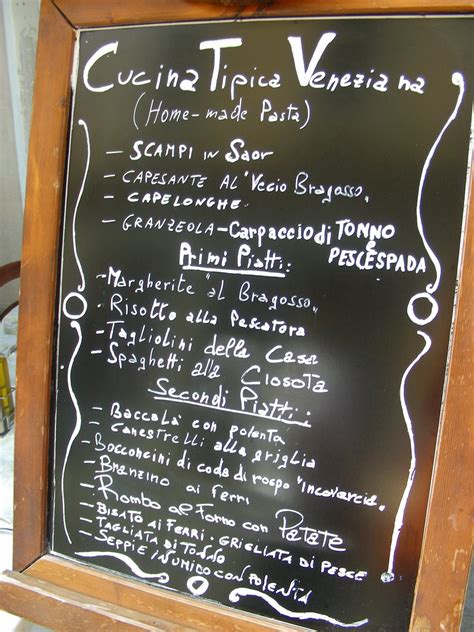 Cucina Tipica Veneziana
(Home-made Pasta)
- SCAMPI in Saor
- CAPESANTE AL "Vecio Bragosso"
- CAPELONGHE.
- GRANZEOLA - Carpaccio di TONNO e PESCESPADA
Primi Piatti:
- Margherite "al Bragosso"
- Risotto alla Pescatora
- Tagliolini della Casa
- Spaghetti alla Ciosota
Secondi Piatti:
- Baccalà con polenta
- Canestrelli alla griglia
- Bocconcini di coda di rospo "incovercia"
- Branzino ai ferri
- Rombo al Forno con Patate
- BISATO AI FERRI - GRIGLIATA DI PESCE
- TAGLIATA DI TONNO
- SEPPIE IN UMIDO CON POLENTA